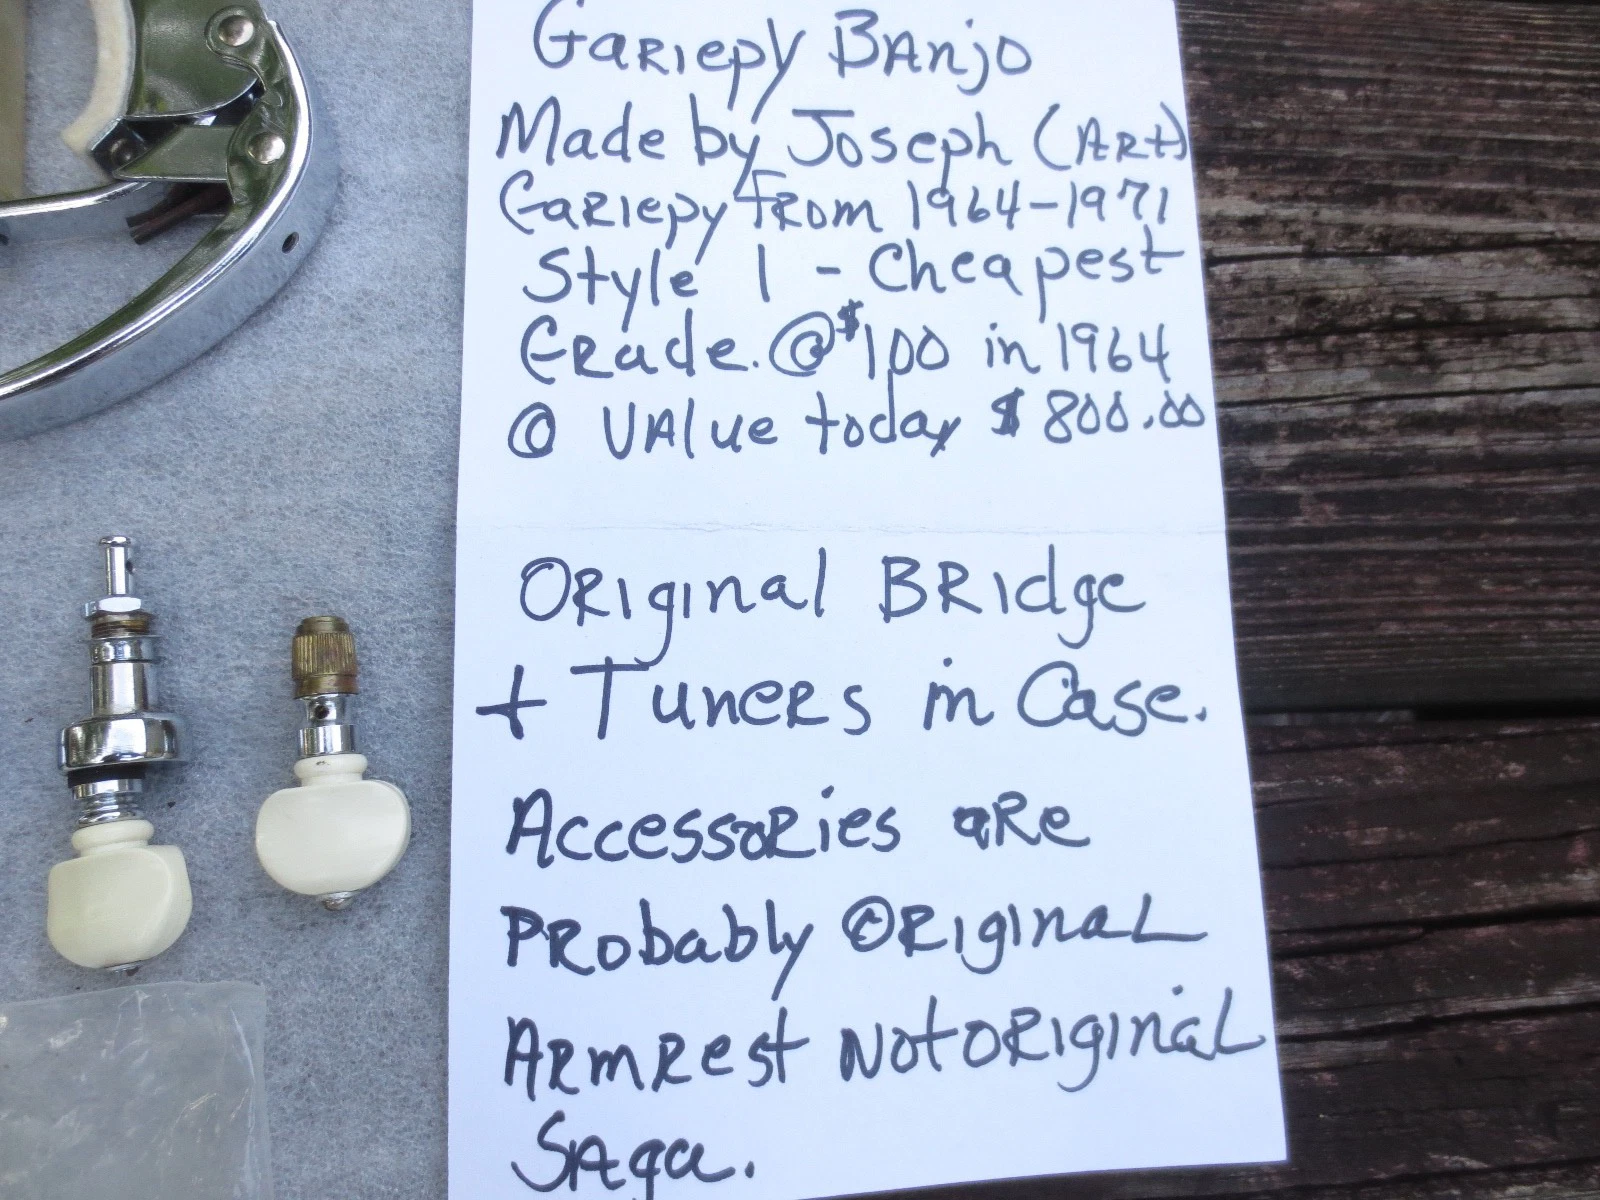 Gariepy Banjo
Made by Joseph (Art)
Gariepy from 1964-1971
Style 1 - Cheapest
Grade. @ $100 in 1964
@ Value today $800.00
Original Bridge
+ Tuners in Case.
Accessories are
Probably Original
Armrest Not Original
Saga.